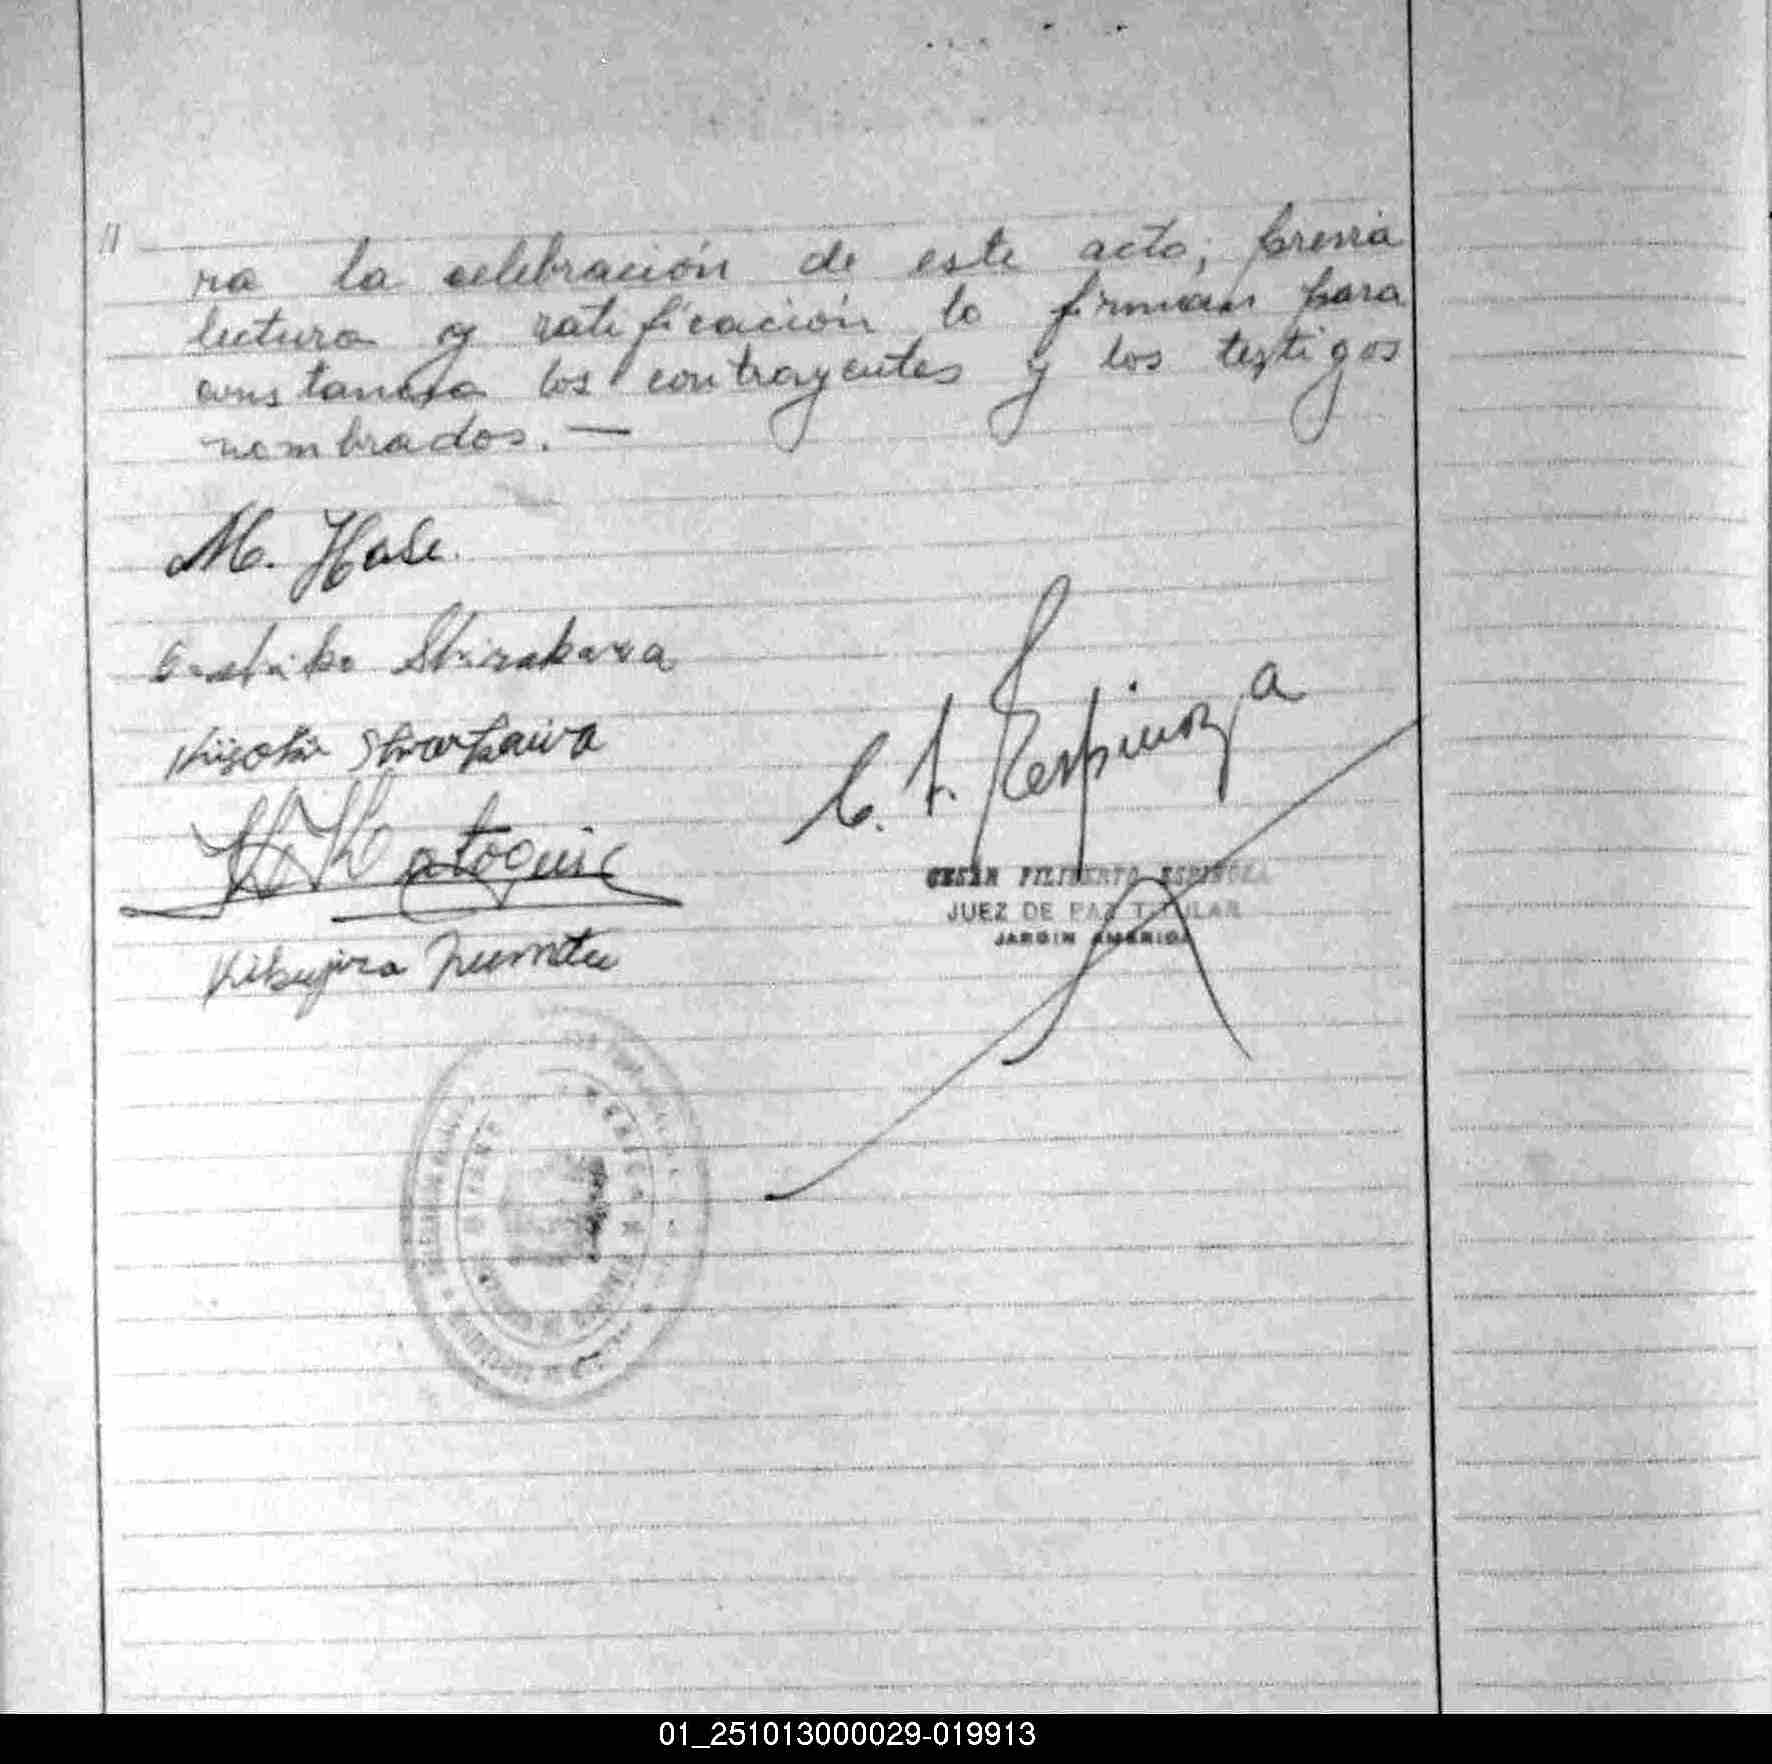 ra la celebración de este acto; previa
lectura y ratificación lo firman para
constancia los contrayentes y los testigos
nombrados. —
M. Hase.
Shirakawa
Shirakawa
C. F. Espinoza
CESAR FILIBERTO ESPINOZA
JUEZ DE PAZ TITULAR
JARDIN AMERICA
01_251013000029-019913